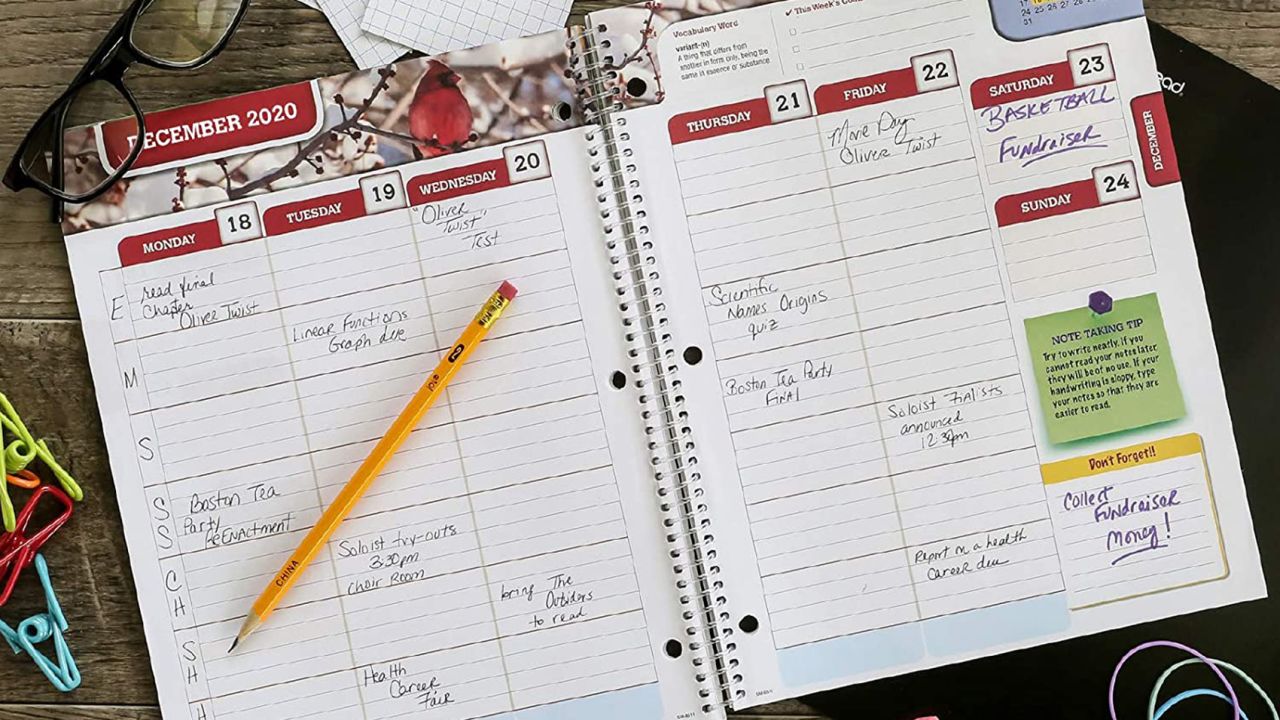 DECEMBER 2020
MONDAY 18
TUESDAY 19
WEDNESDAY 20
E
M
S
S
S
C
H
S
H
H
read final
chapter
Oliver Twist
Boston Tea
Party
ReENACTMENT
Linear Functions
Graph due
Soloist try-outs
3:30pm
choir Room
Health
Career
Fair
"Oliver
Twist"
Test
bring The
Outsiders
to read
2
CHINA
Vocabulary Word
variant-(n)
A thing that differs from
another in form only, being the
same in essence or substance
✓ This Week's
24 25 26 27 28 29 30
31
THURSDAY 21
FRIDAY 22
SATURDAY 23
SUNDAY 24
DECEMBER
Scientific
Names Origins
quiz
Boston Tea Party
FINAl
Movie Day
Oliver Twist
Soloist Finalists
announced
12:30pm
Report on a health
Career due
BASKETBALL
FUNdraiser
NOTE TAKING TIP
Try to write neatly. If you
cannot read your notes later,
they will be of no use. If your
handwriting is sloppy, type
your notes so that they are
easier to read.
Don't Forget!!
Collect
FUNdraiser
Money!